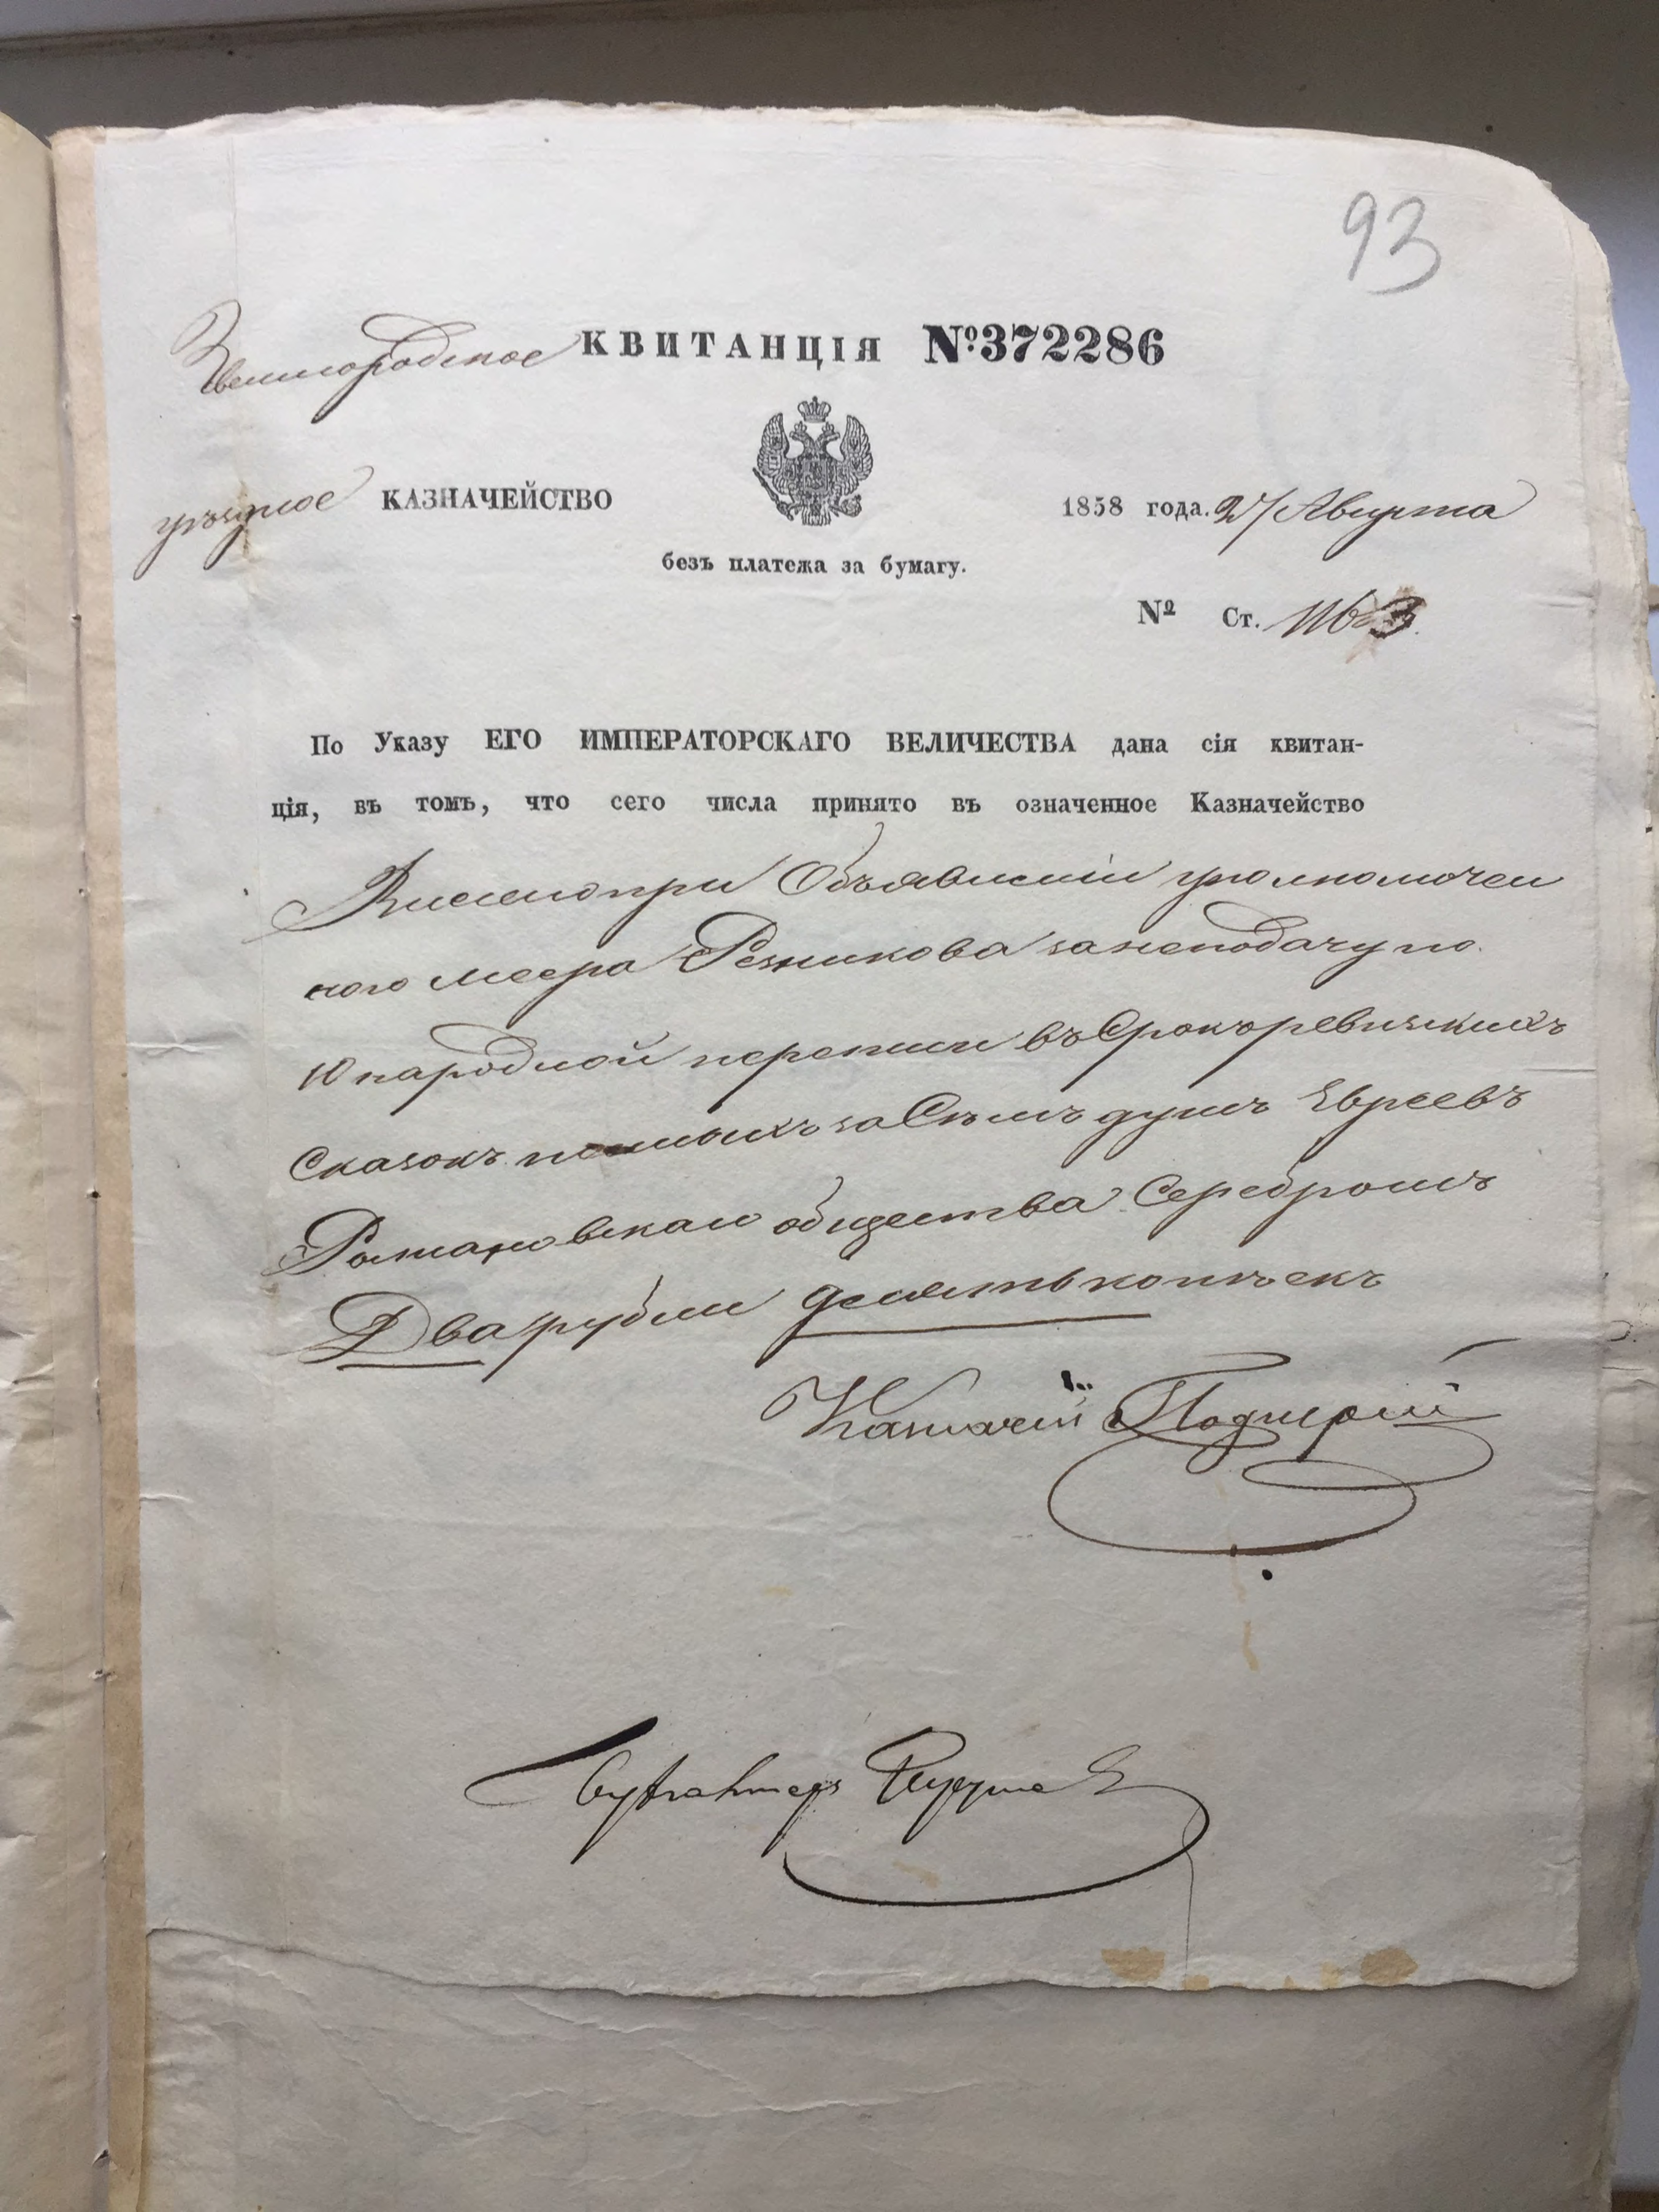 93
Звенигородское КВИТАНЦІЯ №372286
уѣздное КАЗНАЧЕЙСТВО 1858 года. 27 Августа
безъ платежа за бумагу.
№ Ст. 1163.
По Указу ЕГО ИМПЕРАТОРСКАГО ВЕЛИЧЕСТВА дана сія квитан-
ція, въ томъ, что сего числа принято въ означенное Казначейство
при Объявленіи уполномочен
ного Меера Резникова за неподачу по
10 народной переписи въ Срокъ ревизскихъ
Сказокъ за Семъ душъ Евреевъ
общества Серебромъ
Два рубли десять копѣекъ
Казначей
Бухгалтеръ